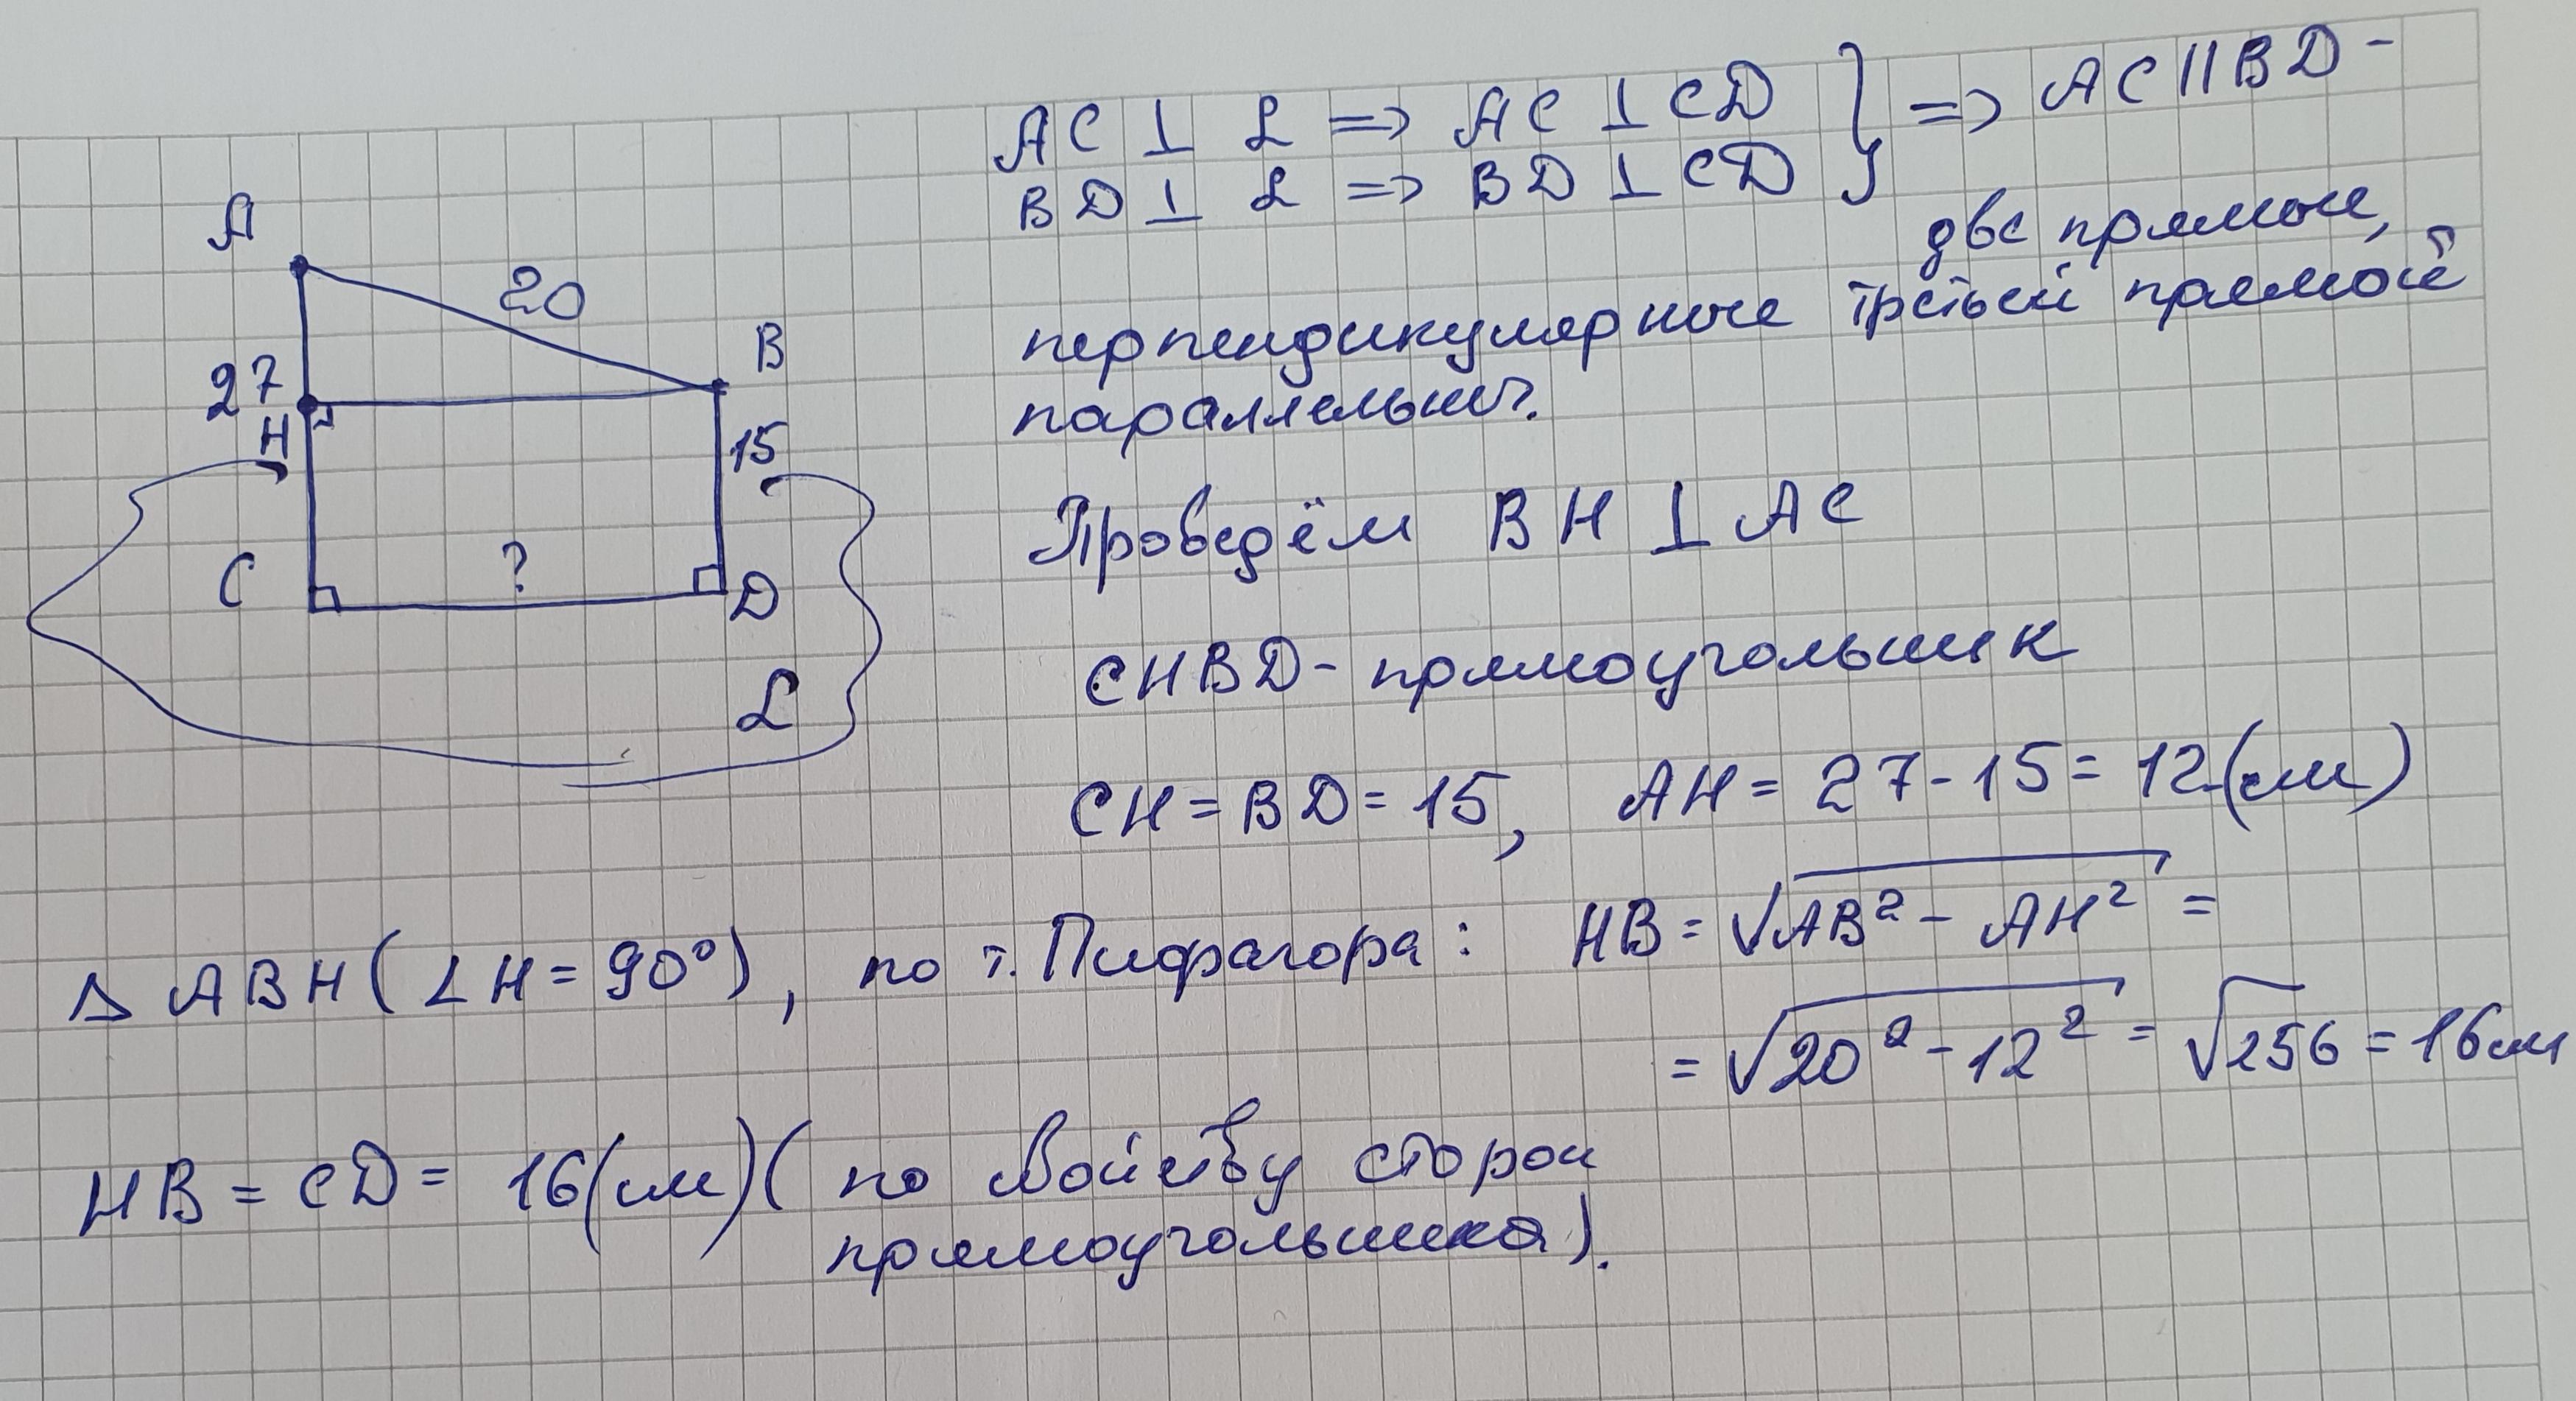 AC ⊥ α => AC ⊥ CD } => AC || BD -
BD ⊥ α => BD ⊥ CD
две прямые,
перпендикулярные третьей прямой
параллельны.
A
20
B
27
H
15
C
?
D
α
Проведём BH ⊥ AC
CHBD - прямоугольник
CH = BD = 15, AH = 27 - 15 = 12 (см)
△ ABH (∠H = 90°), по т. Пифагора: HB = √AB² - AH² =
= √20² - 12² = √256 = 16 см
HB = CD = 16 (см) ( по свойству сторон
прямоугольника).